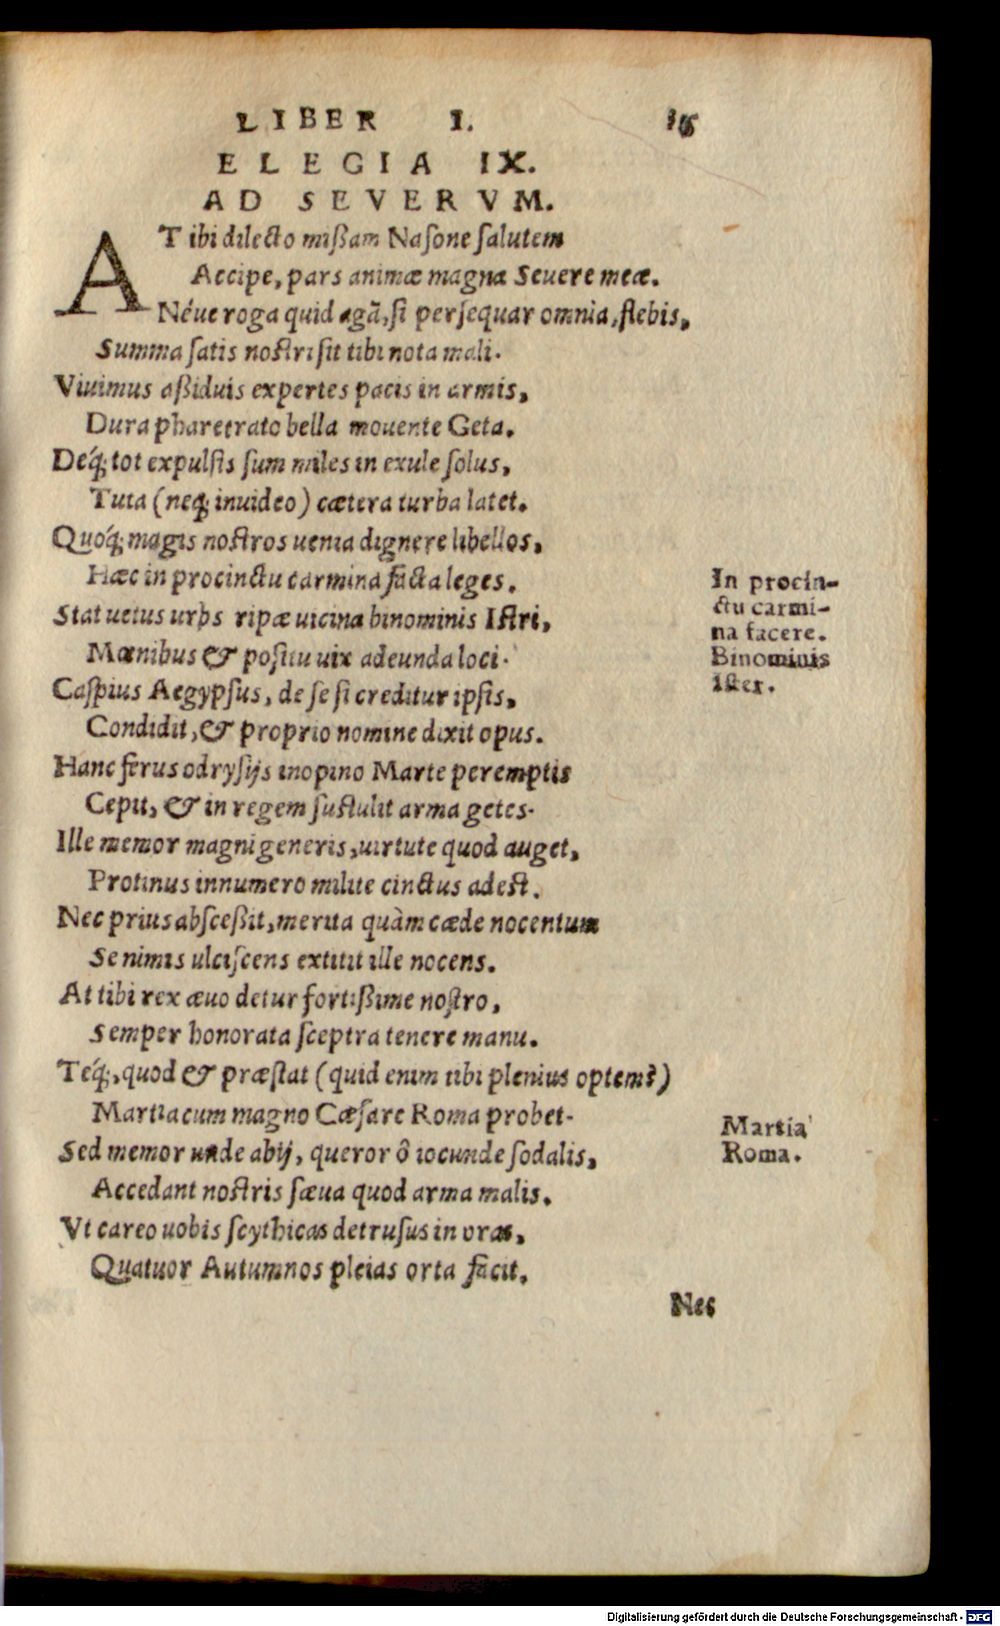 LIBER I.
ELEGIA IX.
AD SEVERVM.
AT ibi dilecto mißam Naſone ſalutem
Accipe, pars animæ magna Seuere meæ.
Néue roga quid agā, ſi perſequar omnia, flebis,
Summa ſatis noſtri ſit tibi nota mali.
Viuimus aßiduis expertes pacis in armis,
Dura pharetrato bella mouente Geta.
Deq́; tot expulſis ſum miles in exule ſolus,
Tuta (neq; inuideo) cætera turba latet.
Quóq́; magis noſtros uenia dignere libellos,
Hæc in procinctu carmina facta leges.
Stat uetus urbs ripæ uicina binominis Iſtri,
Mœnibus & poſitu uix adeunda loci.
Caſpius Aegypſus, de ſe ſi creditur ipſis,
Condidit, & proprio nomine dixit opus.
Hanc ferus odryſijs inopino Marte peremptis
Cepit, & in regem ſuſtulit arma getes.
Ille memor magni generis, uirtute quod auget,
Protinus innumero milite cinctus adeſt.
Nec prius abſceßit, merita quàm cæde nocentum
Se nimis ulciſcens extitit ille nocens.
At tibi rex æuo detur fortißime noſtro,
Semper honorata ſceptra tenere manu.
Teq́;, quod & præſtat (quid enim tibi plenius optem?)
Martia cum magno Cæſare Roma probet.
Sed memor unde abij, queror ô iocunde ſodalis,
Accedant noſtris ſæua quod arma malis.
Vt careo uobis ſcythicas detruſus in oras,
Quatuor Autumnos pleias orta facit.
Nec
In procin-
ctu carmi-
na facere.
Binominis
Iſter.
Martia
Roma.
Digitalisierung gefördert durch die Deutsche Forschungsgemeinschaft - DFG